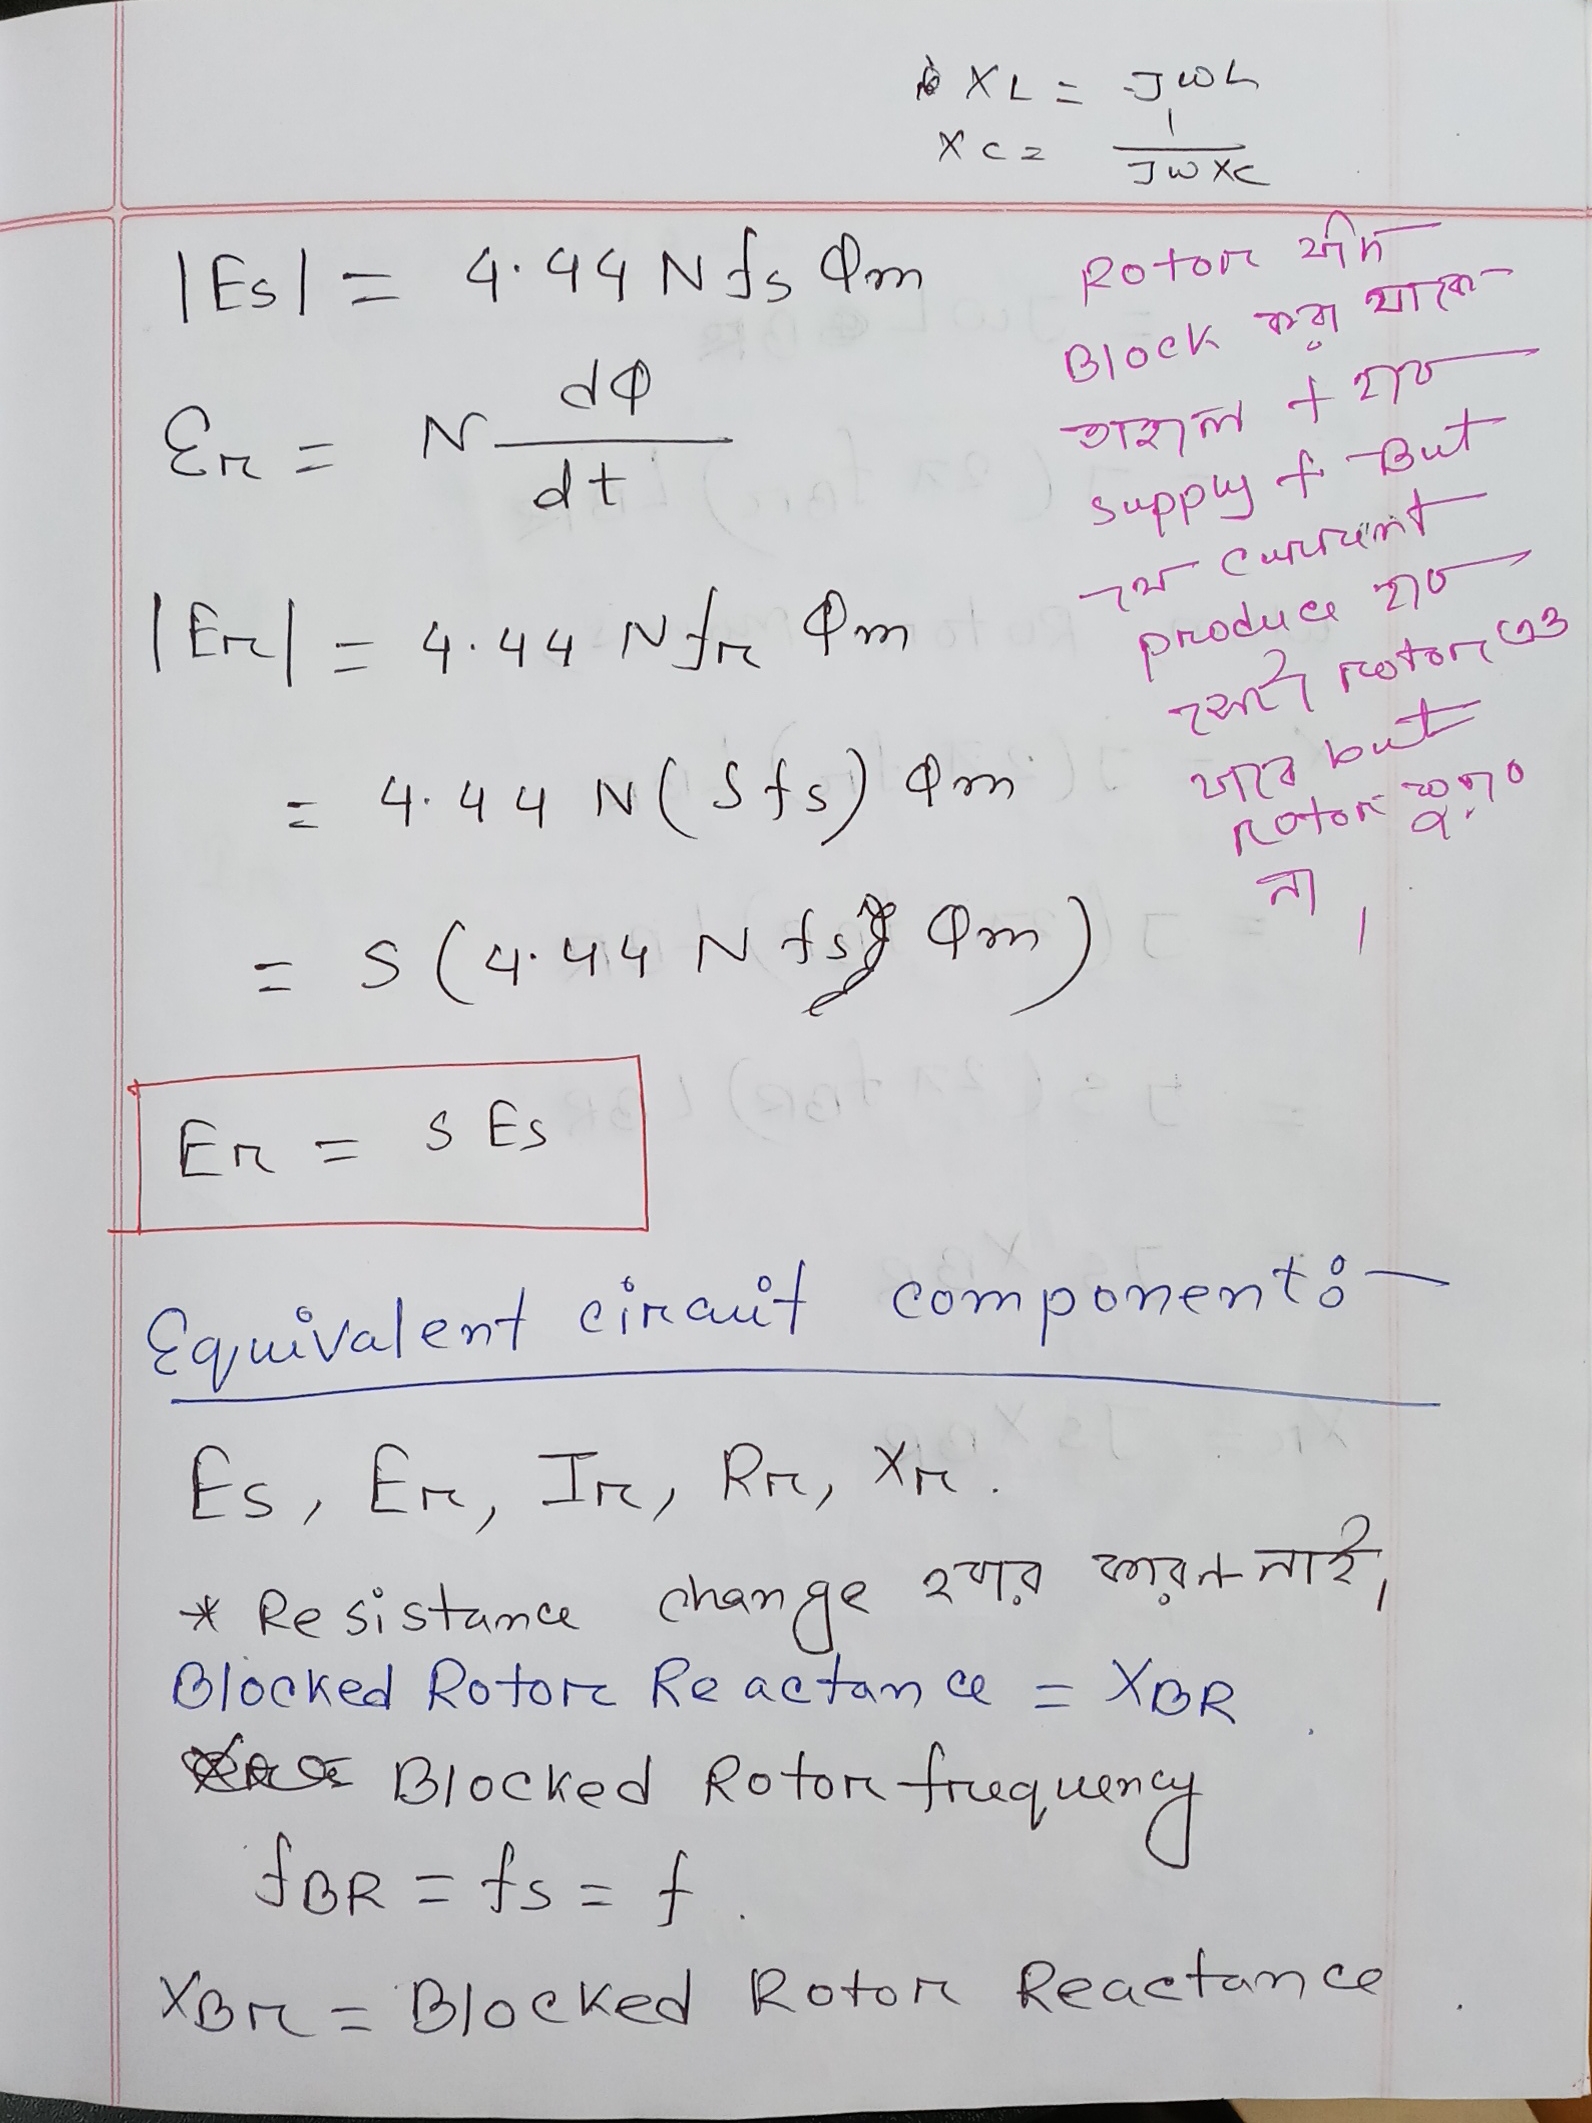 XL = JWL
XC = 1/JWXC
|Es| = 4.44 N fs Φm
Er = N dΦ/dt
|Er| = 4.44 N fr Φm
= 4.44 N (S fs) Φm
= S (4.44 N fs Φm)
Er = S Es
Rotor যদি
Block করা থাকে
তাহলে f হবে
supply f. But
যে current
produce হবে
সেটা rotor এও
যাবে but
rotor ঘুরবে
না।
Equivalent circuit component:-
Es, Er, Ir, Rr, Xr.
* Resistance change হবার কারন নাই।
Blocked Rotor Reactance = XBR.
Blocked Rotor frequency
fBR = fs = f.
XBr = Blocked Rotor Reactance.